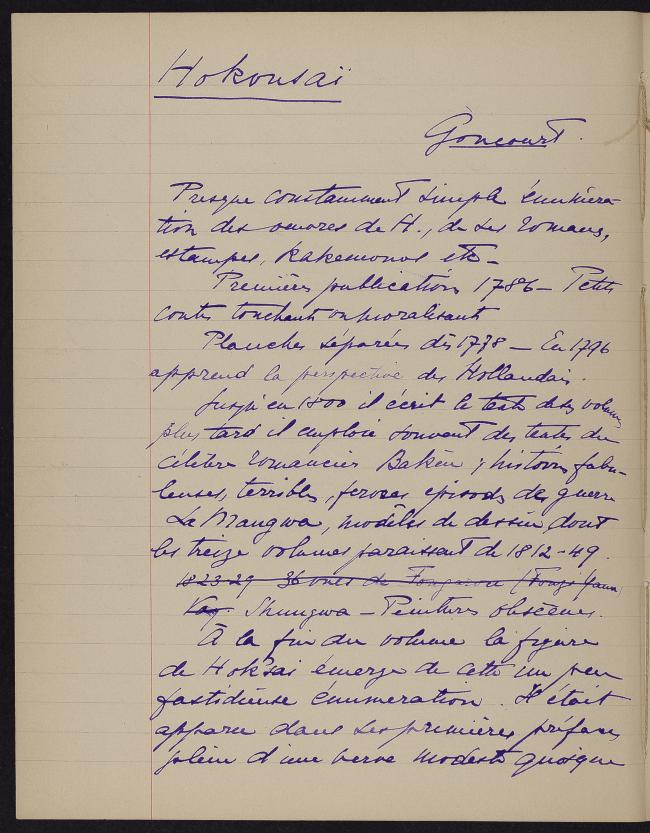 Hokousaï
Goncourt.
Presque constamment simple énuméra-
tion des œuvres de H., de ses romans,
estampes, kakemonos etc-
Premières publications 1786 - Petits
contes touchants ou moralisant
Planches séparées dès 1778 - En 1796
apprend la perspective des Hollandais.
Jusqu'en 1800 il écrit le texte des volumes
plus tard il emploie souvent des textes du
célèbre romancier Bakin ; histoires fabu-
leuses, terribles, féroces épisodes de guerre
La Mangwa, modèles de dessin, dont
les treize volumes paraissent de 1812-49.
1823-29 36 vues de (Fouzi Yama)
Shungwa - Peintures obscènes.
À la fin du volume la figure
de Hok'saï émerge de cette un peu
fastidieuse énumération. Il était
apparu dans ses premières préfaces
plein d'une verve modeste quoique